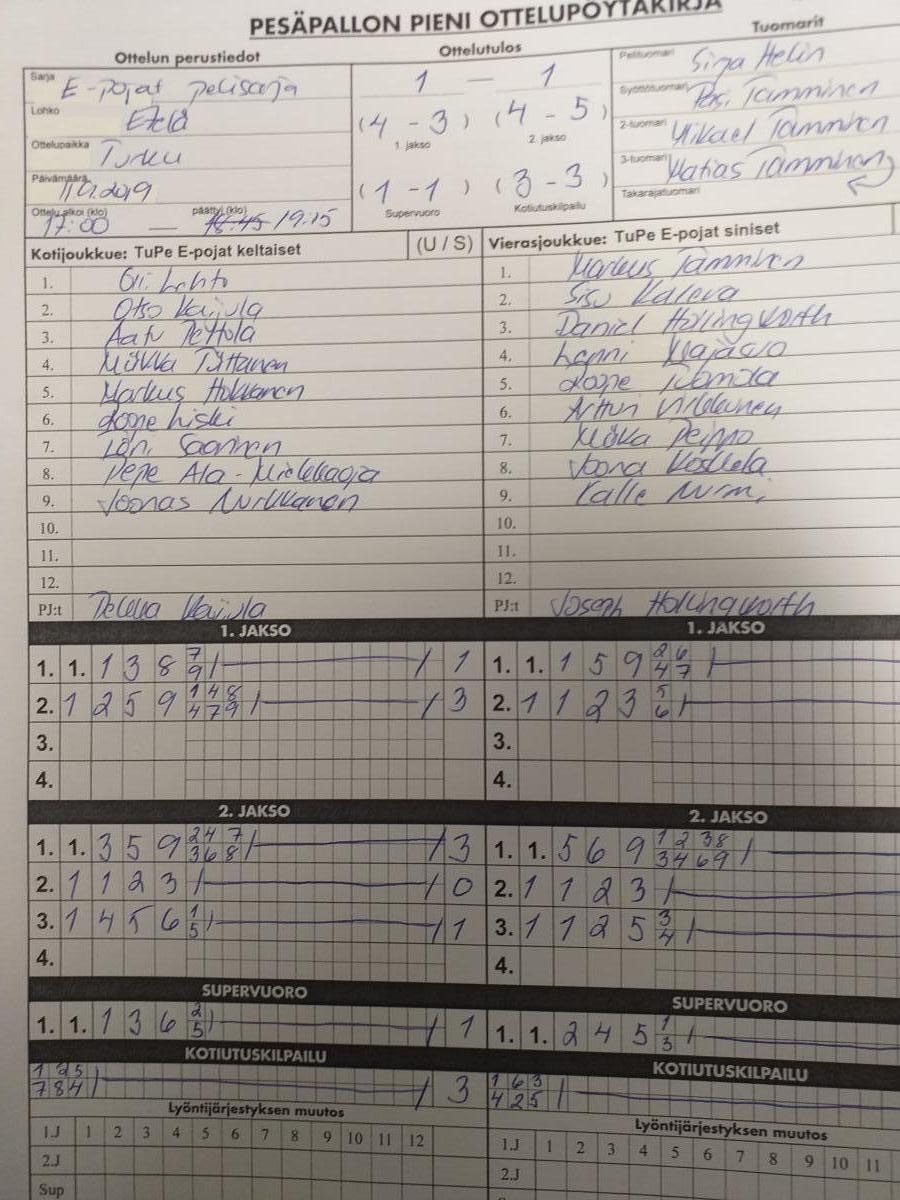 PESÄPALLON PIENI OTTELUPÖYTÄKIRJA
Ottelun perustiedot
Ottelutulos
Tuomarit
Sarja E-pojat pelisarja
1 - 1
Pelituomari Sirja Helin
Lohko Etelä
(4 - 3) (4 - 5)
Syöttötuomari Tamminen
Ottelupaikka Turku
1. jakso 2. jakso
2-tuomari Mikael Tamminen
Päivämäärä 2019
(1 - 1) (3 - 3)
3-tuomari Matias Tamminen
Ottelu alkoi (klo) 17:00 — päättyi (klo) 18:45 19:15
Supervuoro Kotiutuskilpailu
Takarajatuomari
Kotijoukkue: TuPe E-pojat keltaiset (U / S)
Vierasjoukkue: TuPe E-pojat siniset
1. Lehto
1. Markus Tamminen
2. Otso Kaijula
2. Sisu Kaleva
3. Aatu Peltola
3. Daniel Hollingworth
4. Miikka
4. Lenni
5. Markus Hokkanen
5. Joope
6. Joope Liski
6. Artturi Virkkunen
7. Saarinen
7. Miika Peippo
8. Pepe Ala-
8. Joona Koskela
9. Joonas Nurkkanen
9. Kalle Nurmi
10.
10.
11.
11.
12.
12.
PJ:t Pekka Kaijula
PJ:t Joseph Hollingworth
1. JAKSO
1. JAKSO
1. 1. 1 3 8 7 9 1
1. 1. 1 5 9 2 6 4 7
2. 1 2 5 9 1 4 8 4 7 9 3
2. 1 1 2 3 5 6
3.
3.
4.
4.
2. JAKSO
2. JAKSO
1. 1. 3 5 9 2 4 7 3 6 8 3
1. 1. 5 6 9 1 2 3 8 3 4 6 9
2. 1 1 2 3 0
2. 1 1 2 3
3. 1 4 5 6 1 5 1
3. 1 1 2 5 3 4
4.
4.
SUPERVUORO
SUPERVUORO
1. 1. 1 3 6 2 5 1
1. 1. 2 4 5 1 3
KOTIUTUSKILPAILU
KOTIUTUSKILPAILU
1 2 5 7 8 4 3
1 6 3 4 2 5
Lyöntijärjestyksen muutos
Lyöntijärjestyksen muutos
1.J 1 2 3 4 5 6 7 8 9 10 11 12
1.J 1 2 3 4 5 6 7 8 9 10 11
2.J
2.J
Sup